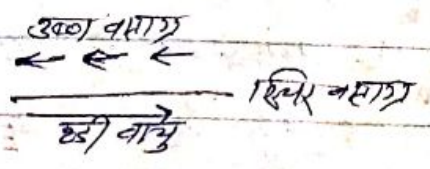 उष्ण वाताग्र
स्थिर वाताग्र
ठंडी वायु